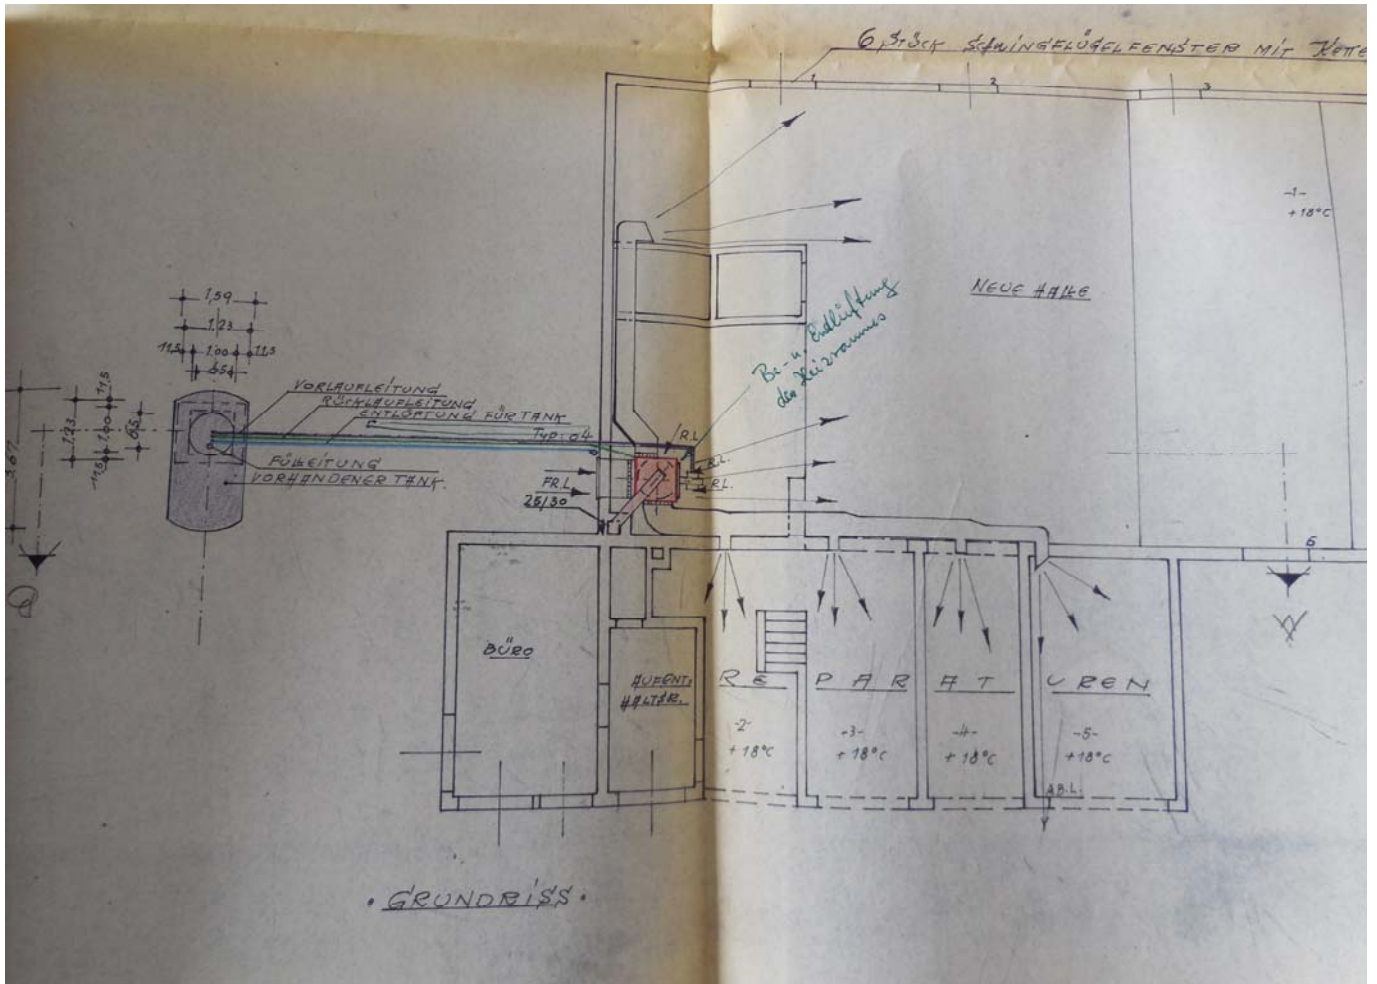 6 Stück SCHWINGFLÜGELFENSTER MIT Kette
1
2
3
-1-
+18°C
NEUE HALLE
Be- u. Entlüftung
des Heizraumes
1,59
1.23
11,5 1.00 11,5
65
11,5
1.23
1,00
65
11,5
3.67
VORLAUFLEITUNG
RÜCKLAUFLEITUNG
ENTLÜFTUNG FÜR TANK
Typ: 04
FÜLLEITUNG
VORHANDENER TANK.
R.L.
R.L.
R.L.
FR.L.
25/30
6
BÜRO
AUFENT:
HALTSR.
RE PAR AT UREN
-2-
+18°C
-3-
+18°C
-4-
+18°C
-5-
+18°C
AB.L.
• GRUNDRISS •